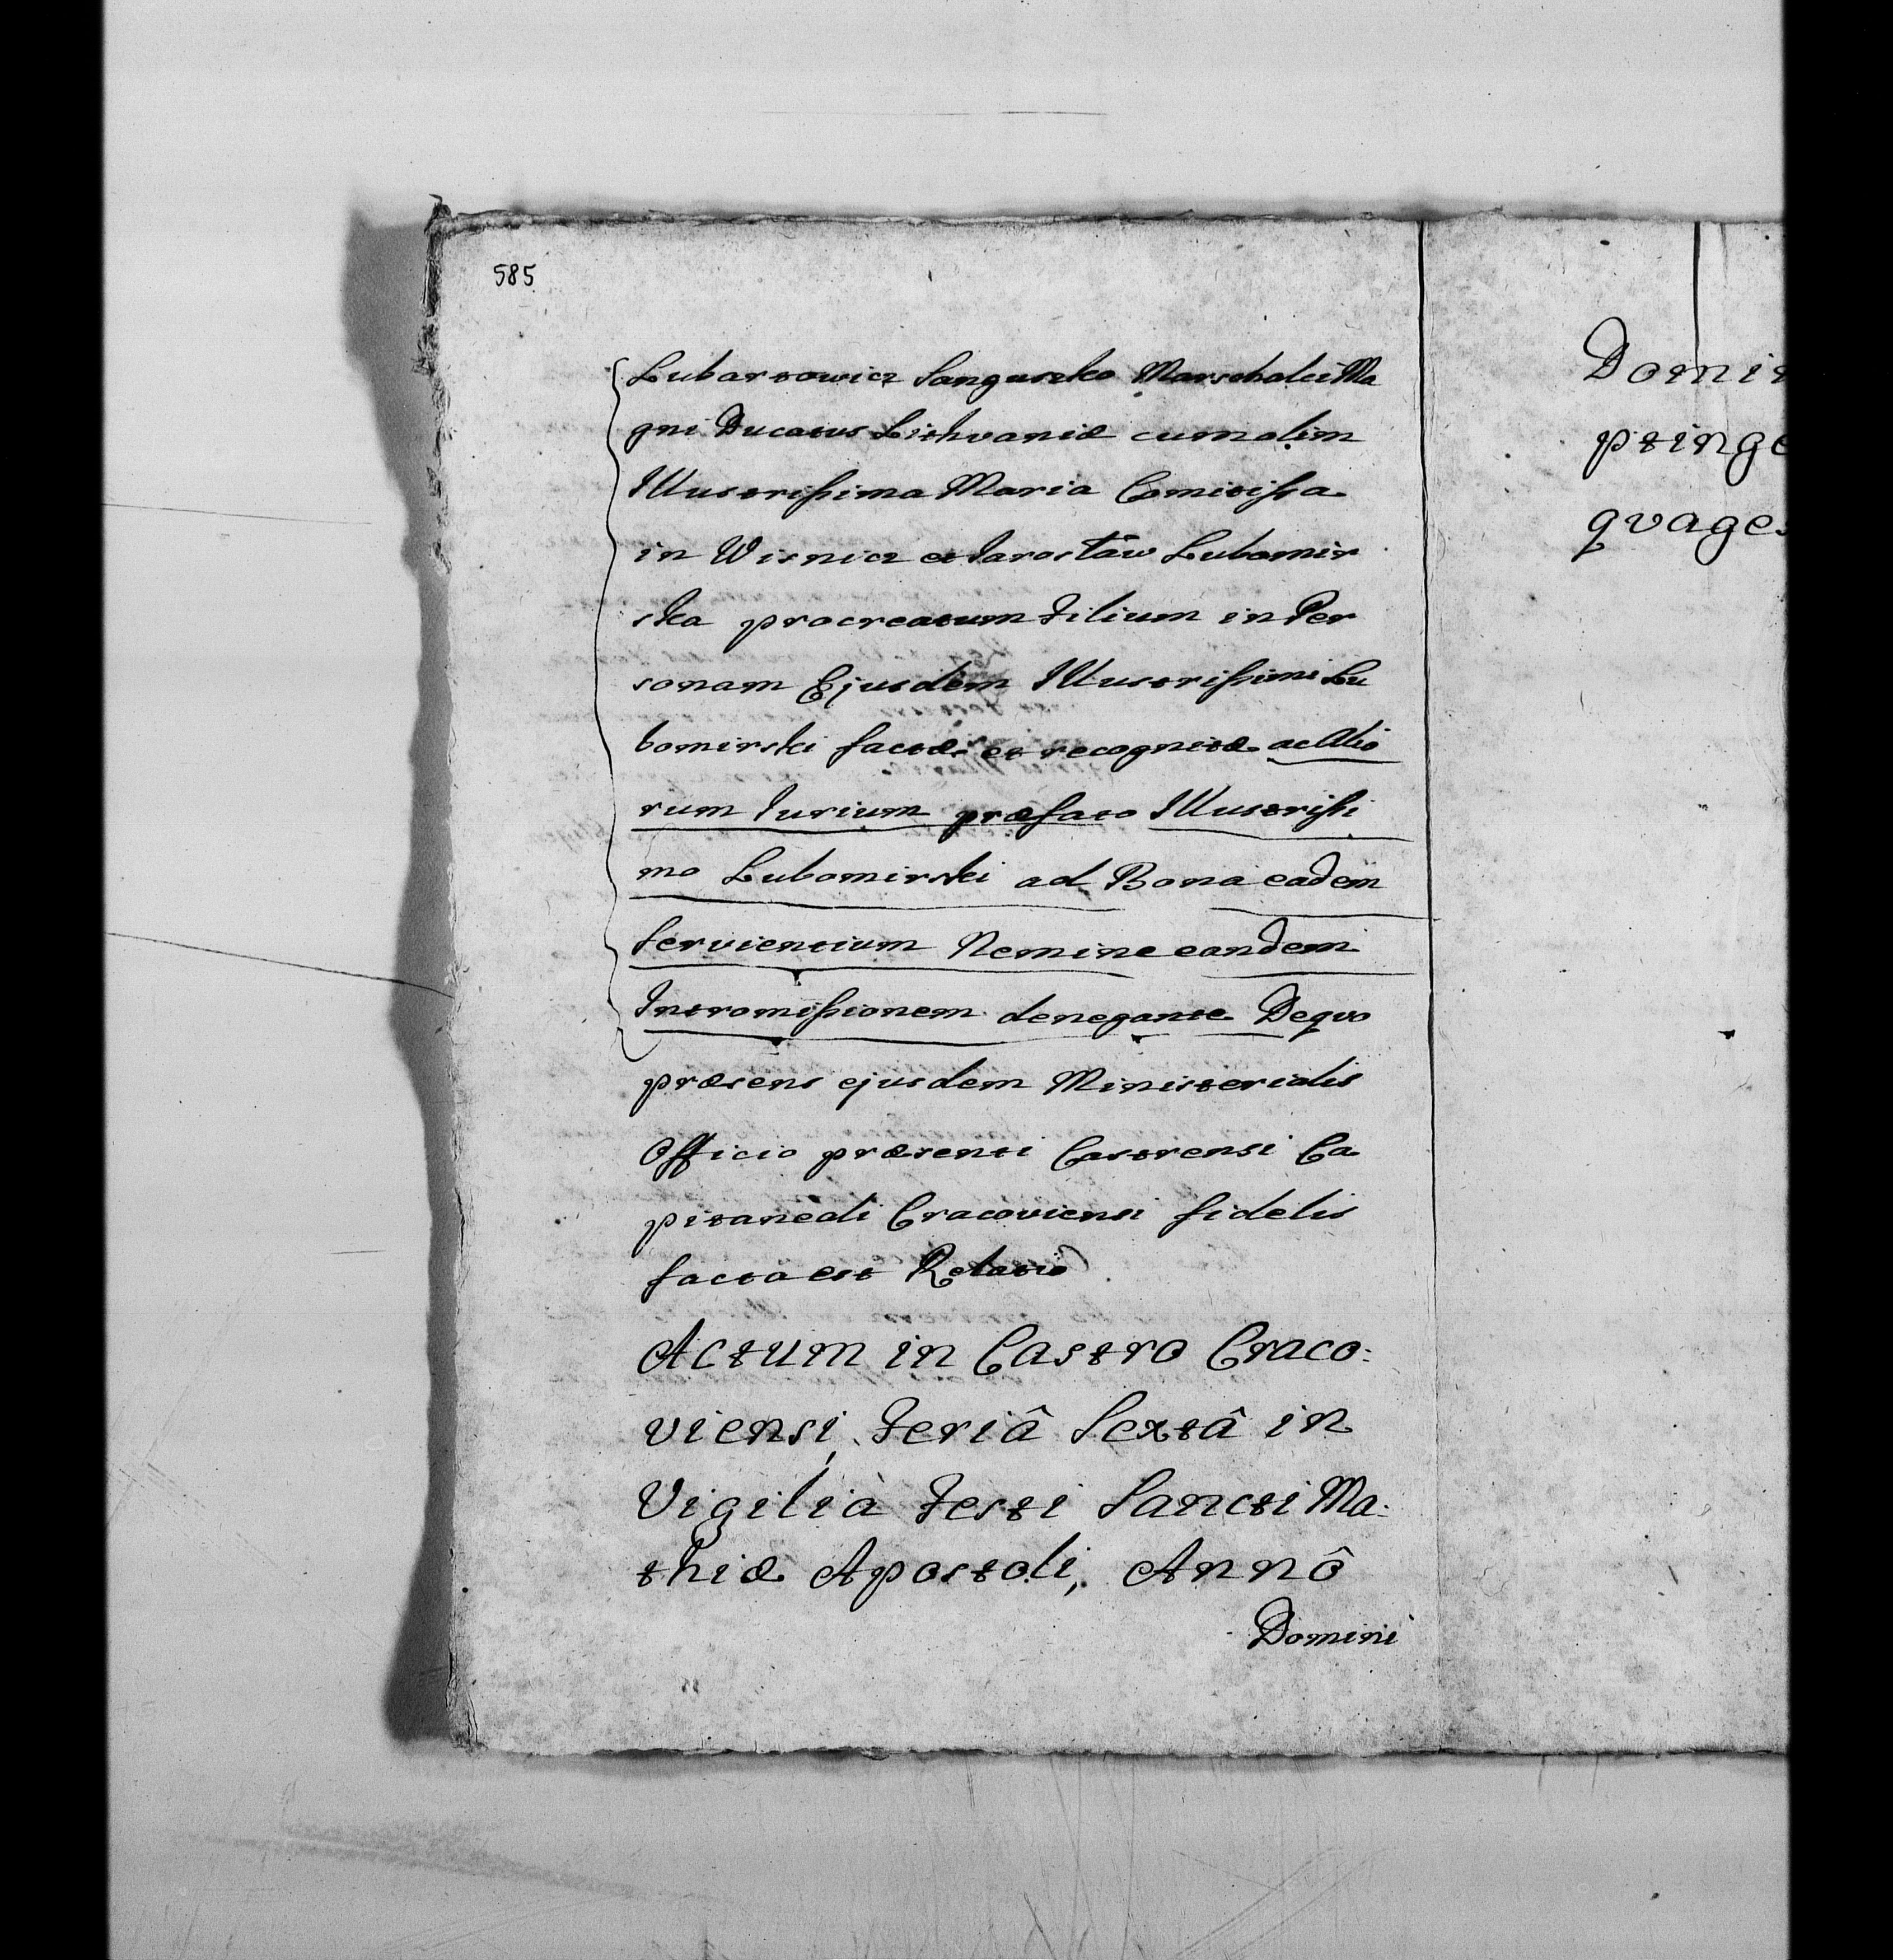 585
Lubartowicz Sanguszko Marschalci Ma
gni Ducatus Lithvaniæ cum olim
Illustrissima Maria Comitissa
in Wisnicz et Jarosław Lubomir
ska procreatum Filium in Per
sonam Ejusdem Illustrissimi Lu
bomirski factæ et recognitæ ac Alio
rum Jurium præfato Illustrissi
mo Lubomirski ad Bona eadem
Servientium Nemine eandem
Intromissionem denegante De quo
præsens ejusdem Ministerialis
Officio præsenti Castrensi Ca
pitaneali Cracoviensi fidelis
facta est Relatio
Actum in Castro Craco:
viensi, Feriâ Sextâ in
Vigilià Festi Sancti Ma:
thiæ Apostoli, Annô
Domini
Domin
pringe
qvages